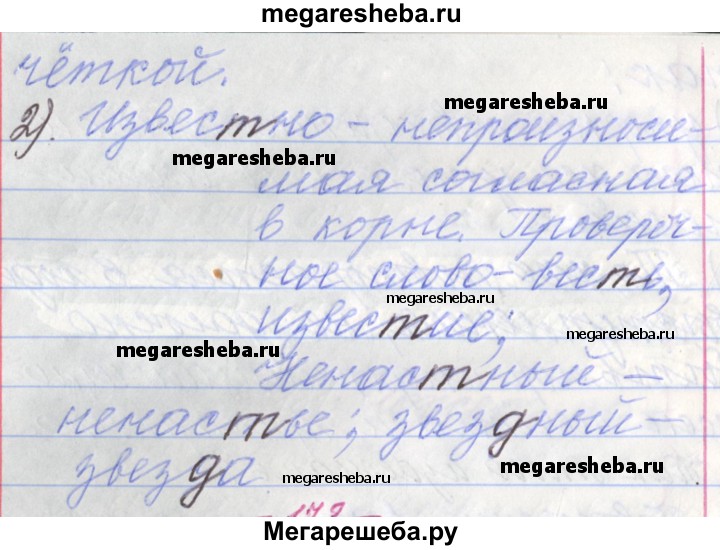 megaresheba.ru
чёткой.
megaresheba.ru
2). Известно – непроизноси-
megaresheba.ru
мая согласная
в корне. Провероч-
ное слово – весть,
megaresheba.ru
известие;
megaresheba.ru
megaresheba.ru
Ненастный –
ненастье; звездный –
megaresheba.ru
megaresheba.ru
звезда
Мегарешеба.ру